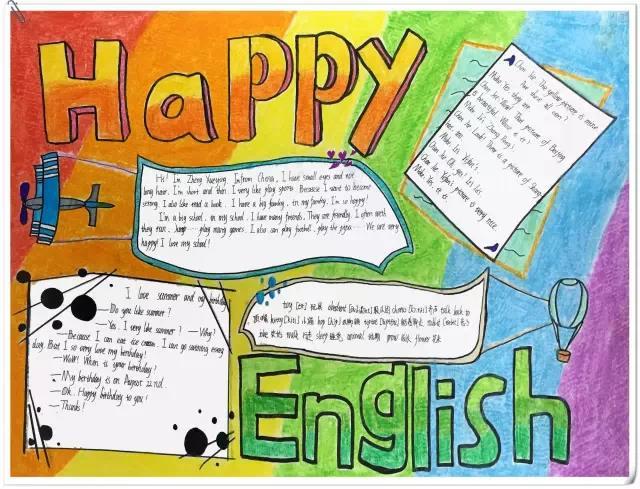 Happy
Hi! I'm Zheng Yueyang. I'm from China, I have small eyes and
long hair. I'm short and thin. I very like play sports. Because I want to become
strong. I also like read a book. I have a big family, in my family, I'm so happy!
I'm a big school, in my school. I have many friends, They are friendly. I often with
they run, play many games, I also can play football, play the We are very
happy! I love my school!
Chen Jie: The yellow picture is mine
Are these all ours?
Mike: Yes, they are
Chen Jie: Wow! The picture of Beijing
is beautiful. Whose is it?
Mike: It's Zhang Peng's.
Chen Jie: Look! There is a picture of
Mike: It's Yifan's.
Chen Jie: Oh, yes! It's his.
Chen Jie: Yifan's picture is very nice.
Mike: Yes, it is.
I love summer and my birthday
—Do you like summer?
—Yes. I very like summer! —Why?
—Because I can eat ice cream. I can go swimming every
day. But I so very love my birthday!
—Wow! When is your birthday?
—My birthday is on August 22nd.
—Ok. Happy birthday to you!
—Thanks!
tiny elephant talk back to
bunny hop
walk 行走 sleep 睡觉 animal 动物 grow flower 花朵
English